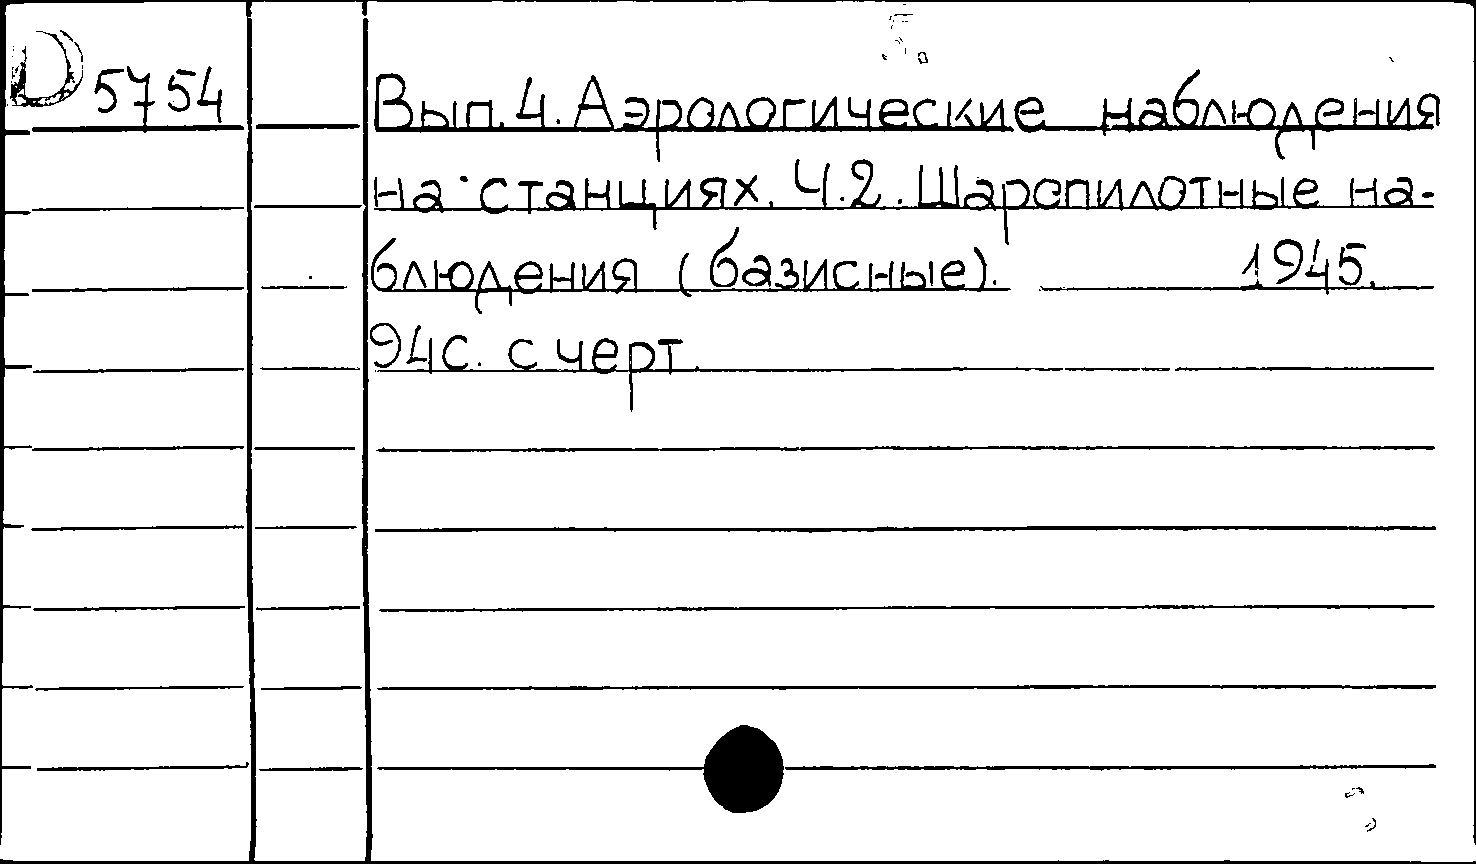 D 5754
Вып. 4. Аэрологические наблюдения
на станциях. Ч.2. Шаропилотные на-
блюдения (базисные). 1945.
94с. с черт.